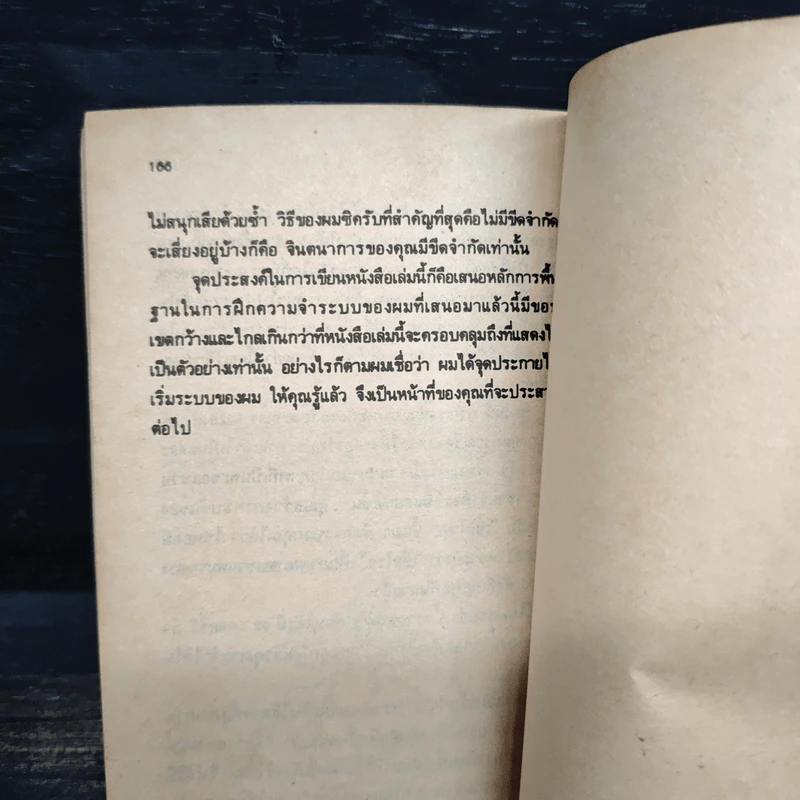 166
ไม่สนุกเสียด้วยซ้ำ วิธีของผมซิครับที่สำคัญที่สุดคือไม่มีขีดจำกัด
จะเสี่ยงอยู่บ้างก็คือ จินตนาการของคุณมีขีดจำกัดเท่านั้น
จุดประสงค์ในการเขียนหนังสือเล่มนี้ก็คือเสนอหลักการพื้น
ฐานในการฝึกความจำระบบของผมที่เสนอมาแล้วนี้มีขอบ
เขตกว้างและไกลเกินกว่าที่หนังสือเล่มนี้จะครอบคลุมถึงที่แสดง
เป็นตัวอย่างเท่านั้น อย่างไรก็ตามผมเชื่อว่า ผมได้จุดประกาย
เริ่มระบบของผม ให้คุณรู้แล้ว จึงเป็นหน้าที่ของคุณที่จะ
ต่อไป